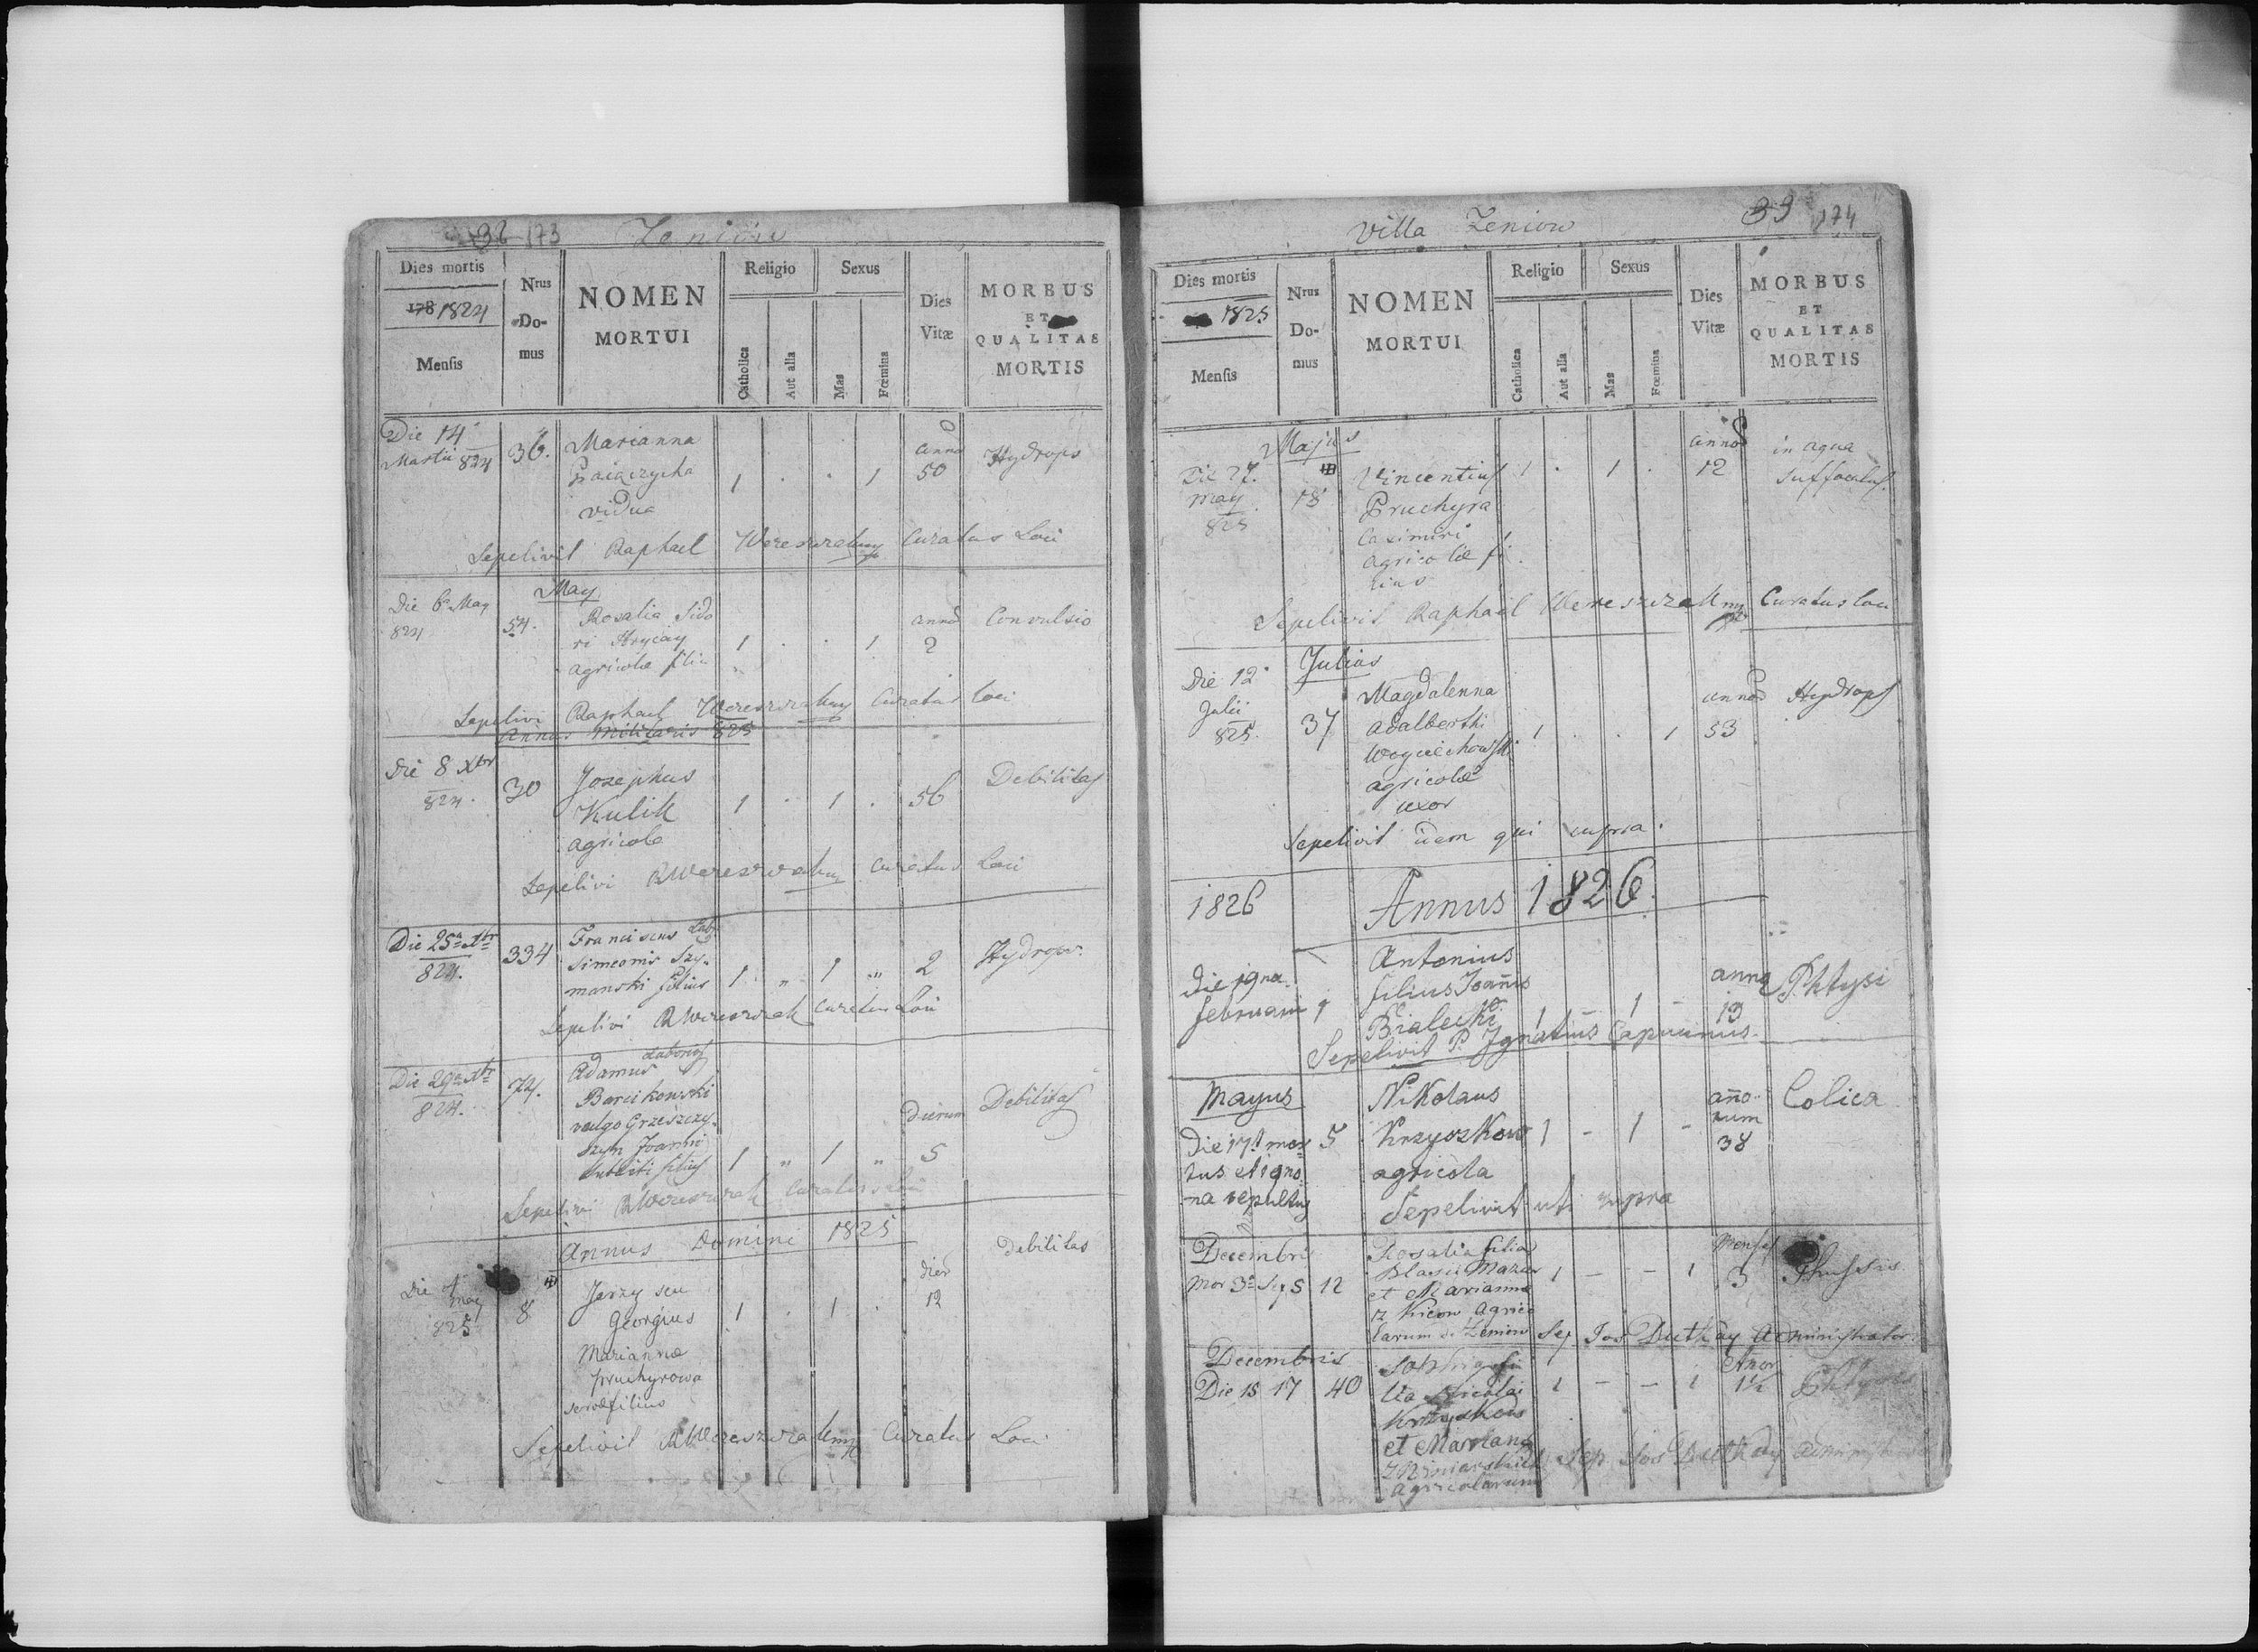 32 173 Zeniow
Dies mortis
178 1824
Mensis
Nrus Do-mus
NOMEN
MORTUI
Religio
Catholica
Aut alia
Sexus
Mas
Fœmina
Dies
Vitæ
MORBUS
ET
QUALITAS
MORTIS
Die 14 36. Marianna anno Hydrops
Martii 824
1 . . 1 50
vidua
Sepelivit Raphael Curatus Loci
May
Die 6 May 54. Rosalia Sido anno Convulsio
824 ri Hrycay 1 . . 1 2
agricolæ filia
Sepelivi Raphael Curatus Loci
Annus Militaris 825
Die 8 Xbr 30 Josephus Debilitas
824. Kulik 1 . 1 . 56
agricola
Sepelivi Curatus Loci
Die 25a Xbr 334 Franciscus Lab. Hydrops.
824. Simeonis Szy-
manski filius 1 " 1 " 2
Sepelivi Curatus Loci
Die 29a Xbr 74. Adamus Laboriosi Debilitas
824. Barcikowski dierum
vulgo Grzeszczy-
szyn Joannis
filius 1 " 1 " 5
Sepelivi Curatus Loci
Annus Domini 1825
Die 4 Jerzy seu dier Debilitas
May 8 Georgius 1 . 1 . 12
825
Mariannæ
Pruchyrowa
filius
Sepelivit Curatus Loci
Villa Zeniow 33 174
Dies mortis
1825
Mensis
Nrus Do-mus
NOMEN
MORTUI
Religio
Catholica
Aut alia
Sexus
Mas
Fœmina
Dies
Vitæ
MORBUS
ET
QUALITAS
MORTIS
Majus
Die 27. Vincentius 1 . 1 . anno 12 in aqua
May 18 Pruchyra suffocatus.
825 Casimiri
agricolæ fi
lius
Sepelivit Raphael Curatus Loci
Julius
Die 12 Magdalenna anno Hydrops
Julii 37 Adalberthi 1 . . 1 53
825. Woyciechowski
agricolæ
uxor
Sepelivit idem qui supra.
1826 Annus 1826.
Antonius
Die 19na filius Joañis anno Phtysi
februarii 1 Bialecki 1 – 1 – 19
Sepelivit P. Ignatius Capucinus.
Mayus Nikolaus año- Colica
rum
Die 17a mor 5 Krzyszkow 1 – 1 – 38
tus et 19no
na sepultus agricola
Sepelivit uti supra
Decembris Rosalia filia Menses
Mor 3a Sep 5 12 Blasii Mazur 1 – – 1 3
et Marianna
z Kicow Agrico
larum de Zeniow Sep. Jos Duthay Administrator
Decembris
Die 15 17 40 lia Nicolai 1 – – 1 1½
Krzyszkow
et Marianna
agricolarum Sep Jos Duthay